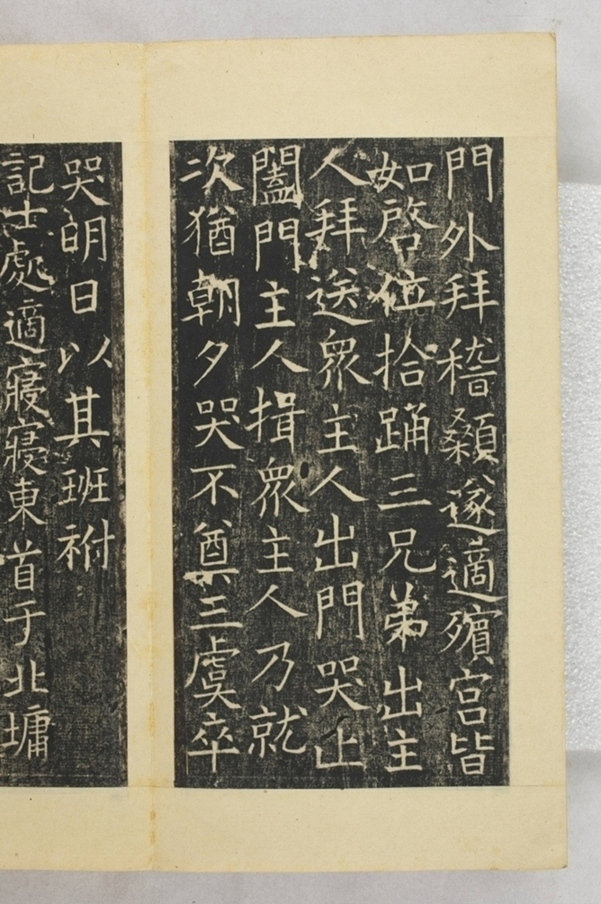 門外拜稽顙遂適殯宮皆
如啓位拾踊三兄弟出主
人拜送眾主人出門哭止
闔門主人揖眾主人乃就
次猶朝夕哭不奠三虞卒
哭明日以其班祔
記士處適寢寢東首于北墉